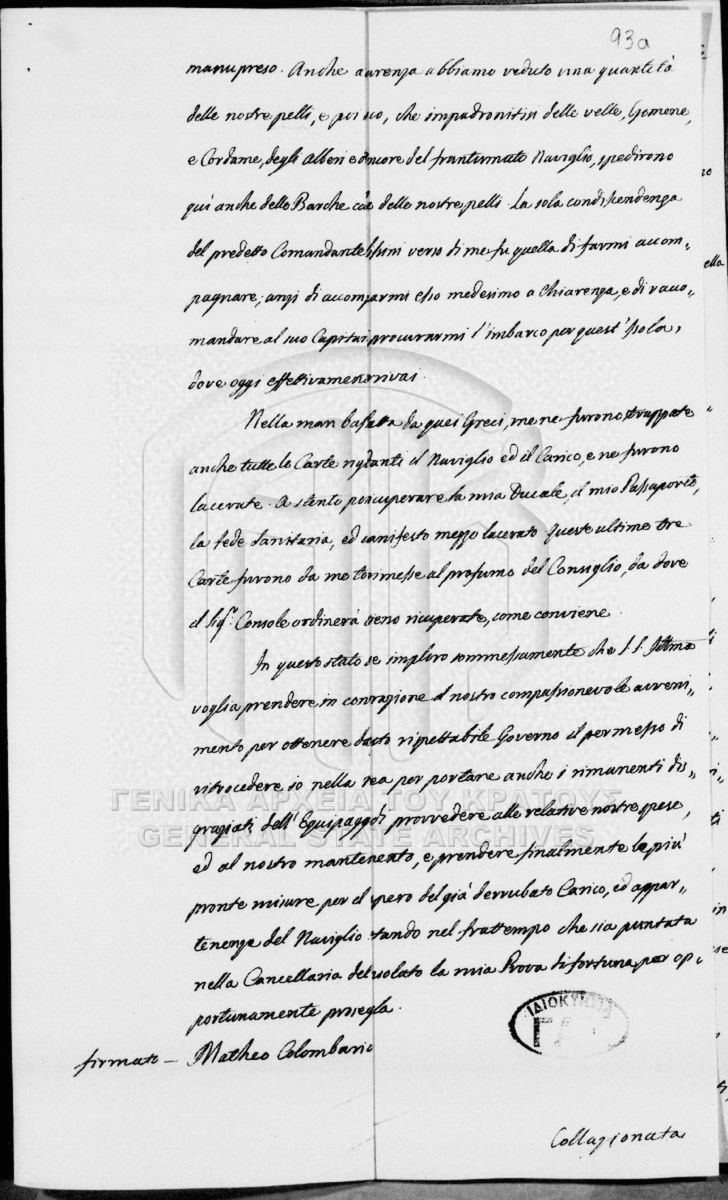 93a
manupreso. Anche a arenza abbiamo veduto una quantità
delle nostre pelli, e poi so, che impadronitisi delle velle, Gomene,
e Cordame, degli Alberi e ancore del frantumato Naviglio, spedirono
quì anche delle Barche delle nostre pelli. La sola condiscendenza
del predetto Comandante verso di me fu quella di farmi accom,,
pagnare, anzi di accomparmi esso medesimo a Chiarenza, e di racco,,
mandare al suo Capitai procurarmi l'imbarco per quest'Isola,
dove oggi effettivamenrrivai.
Nella man bassa da quei Greci, me ne furono strappate
anche tutte le Carte rigtanti il Naviglio ed il Carico, e ne furono
lacerate. A stento poicuperare la mia Ducale, il mio Passaporto,
la fede Sanitaria, ed anifesto mezzo lacerato. Queste ultime tre
Carte furono da me torimesse al profumo del Consiglio, da dove
il Sigr. Console ordinerà sieno ricuperate, come conviene.
In questo stato se imploro sommessamente che S. S. Illma
voglia prendere in conrazione il nostro compassionevole avveni,,
mento per ottenere dasto rispettabile Governo il permesso di
ritrocedere io nella sea per portare anche i rimanenti dis,,
graziati dell'Equipaggdi provvedere alle relative nostre spese,
ed al nostro mantenento, e prendere finalmente le più
pronte misure per il pero del già derrubato Carico, ed appar,,
tenenze del Naviglio tando nel frattempo che sia puntata
nella Cancellaria delsolato la mia Prova di fortuna per op,,
portunamente prosegla.
firmato — Matheo Colombario
ΙΔΙΟΚΤΗΣΙΑ
Collazionata
ΓΕΝΙΚΑ ΑΡΧΕΙΑ ΤΟΥ ΚΡΑΤΟΥΣ
GENERAL STATE ARCHIVES